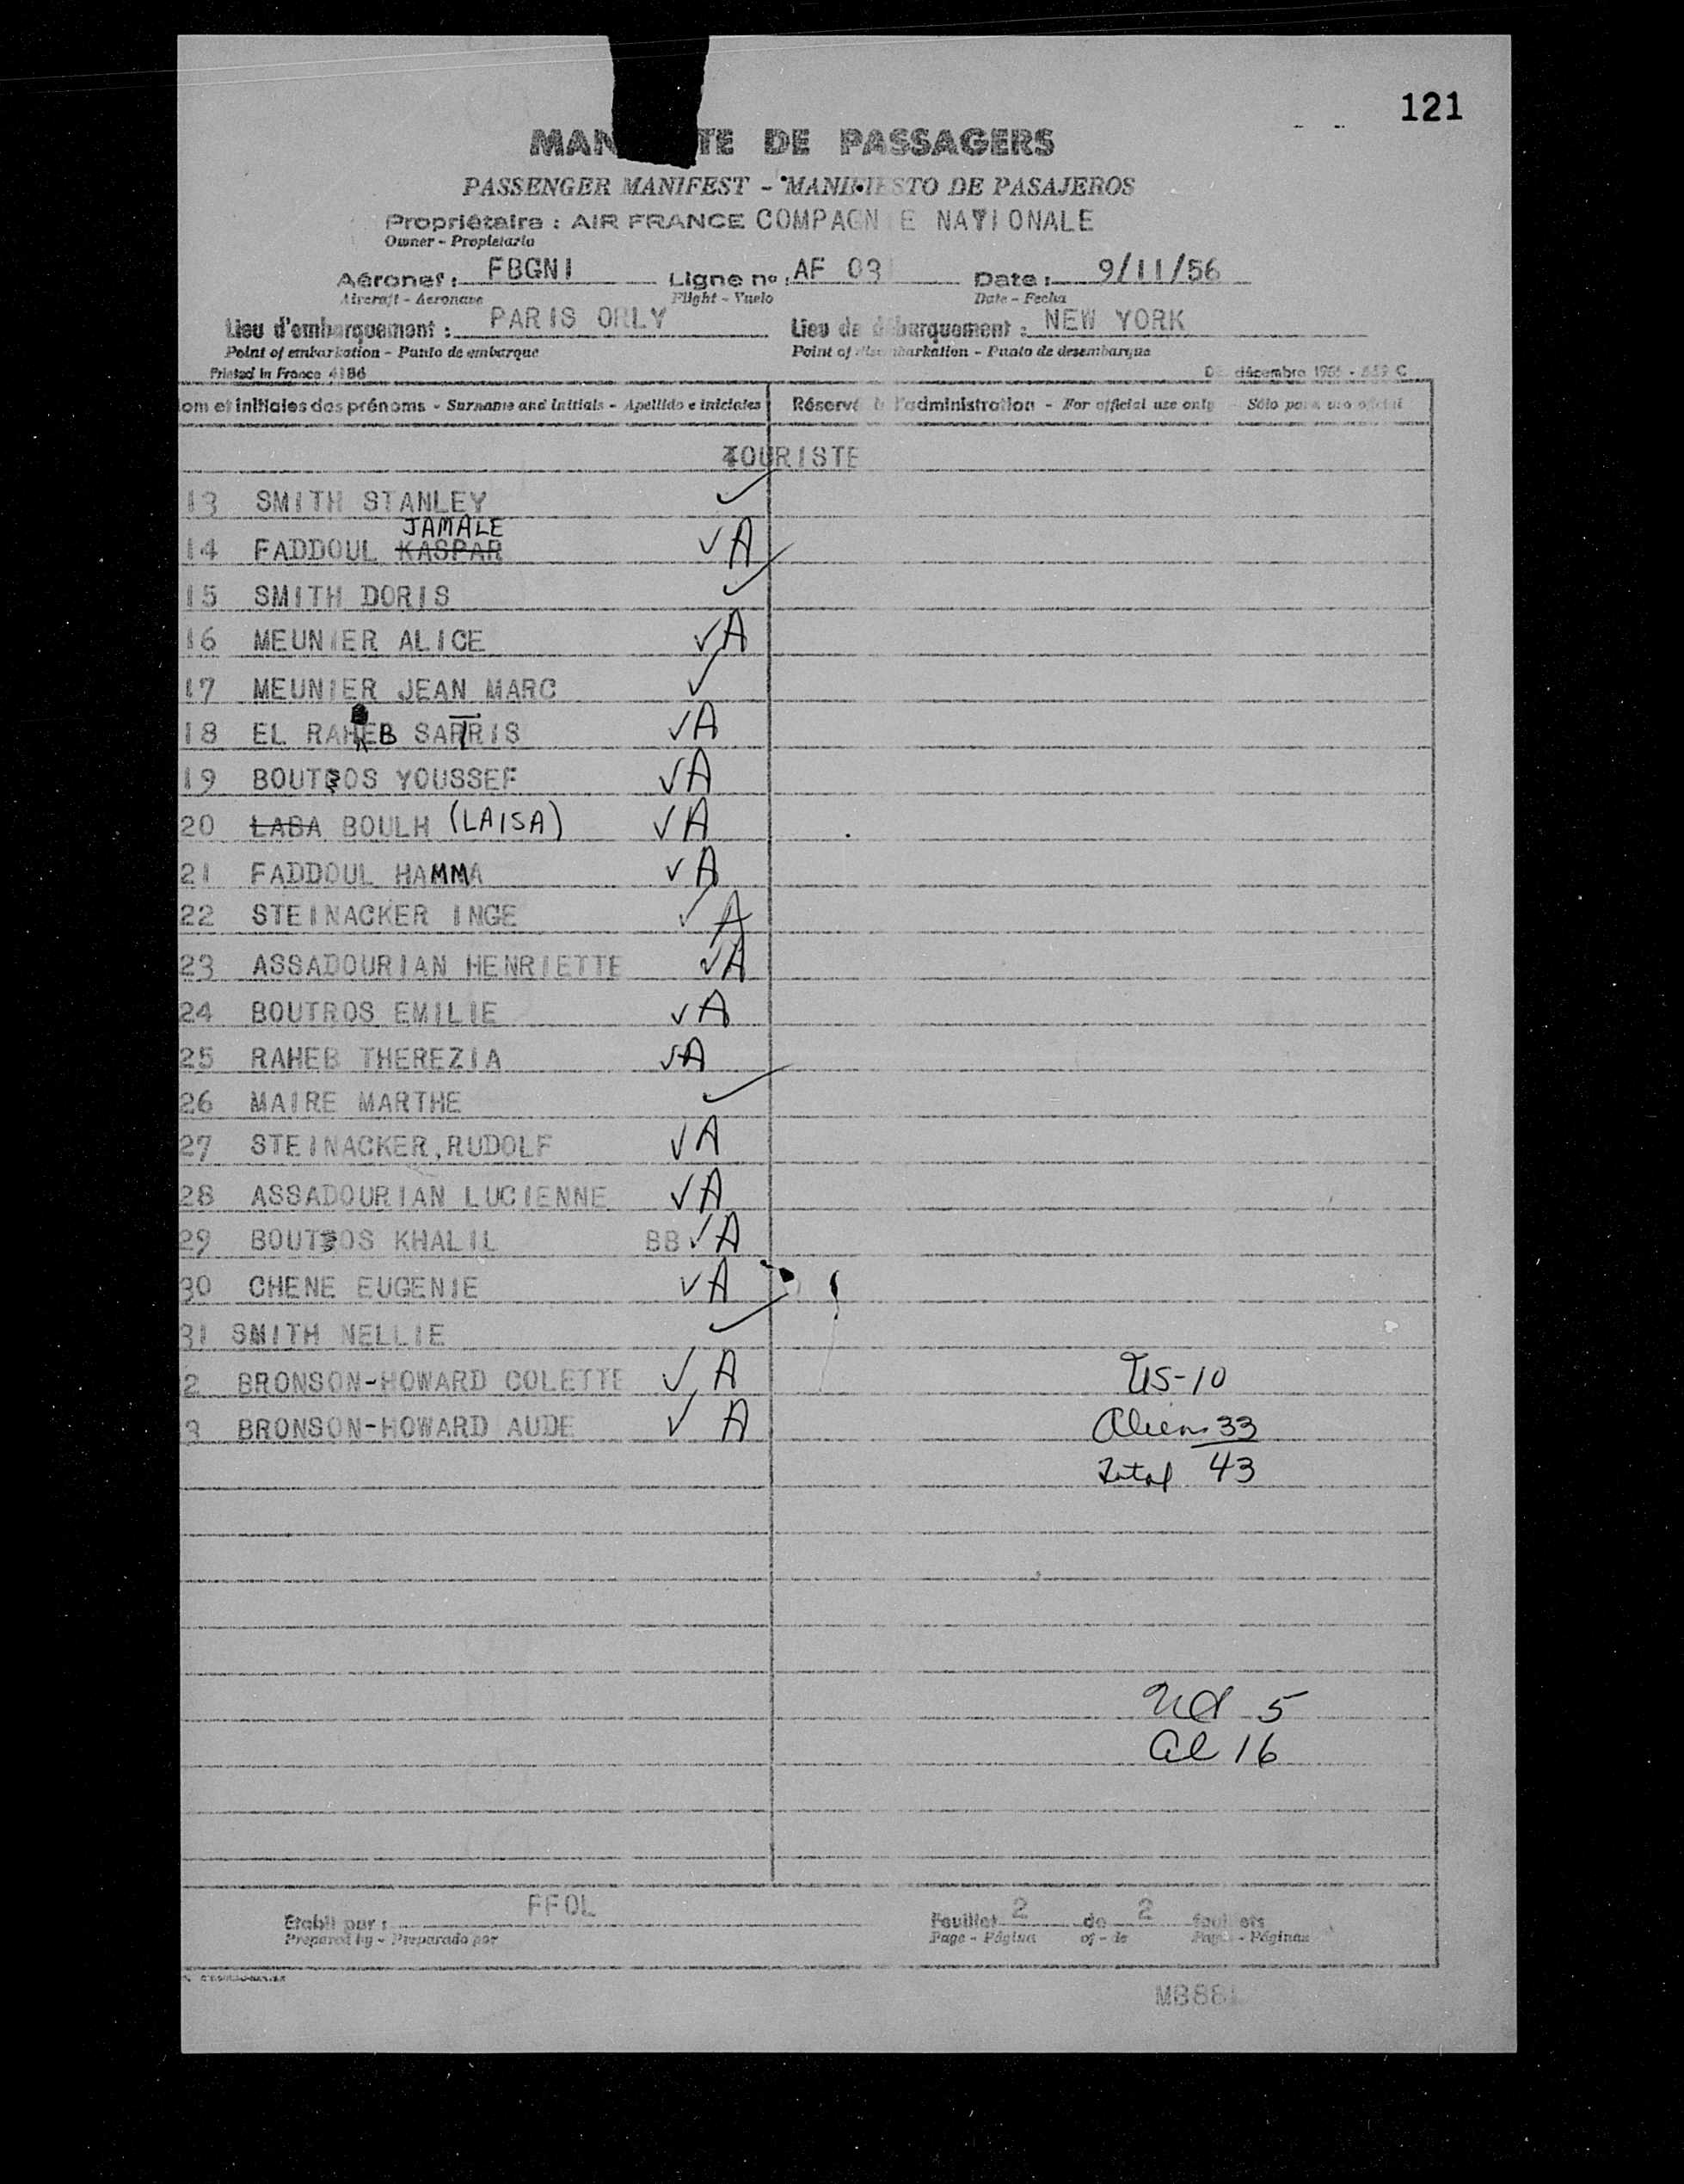 121
MAN TE DE PASSAGERS
PASSENGER MANIFEST - MANIFIESTO DE PASAJEROS
Propriétaire : AIR FRANCE COMPAGNIE NATIONALE
Owner - Propietario
Aéronef : FBGNI Ligne nº : AF 03 Date : 9/11/56
Aircraft - Aeronave Flight - Vuelo Date - Fecha
Lieu d'embarquement : PARIS ORLY Lieu de débarquement : NEW YORK
Point of embarkation - Punto de embarque Point of disembarkation - Punto de desembarque
Printed in France 4186 décembre
om et initiales des prénoms - Surname and initials - Apellido e iniciales Réservé à l'administration - For official use only - Sólo para uso oficial
TOURISTE
13 SMITH STANLEY ✓
JAMALE
14 FADDOUL KASPAR ✓ A
15 SMITH DORIS ✓
16 MEUNIER ALICE ✓ A
17 MEUNIER JEAN MARC ✓
18 EL RAHEB SARRIS ✓ A
19 BOUTROS YOUSSEF ✓ A
20 LABA BOULH (LAISA) ✓ A
21 FADDOUL HAMMA ✓ A
22 STEINACKER INGE ✓ A
23 ASSADOURIAN HENRIETTE ✓ A
24 BOUTROS EMILIE ✓ A
25 RAHEB THEREZIA ✓ A
26 MAIRE MARTHE ✓
27 STEINACKER,RUDOLF ✓ A
28 ASSADOURIAN LUCIENNE ✓ A
29 BOUTROS KHALIL BB ✓ A
30 CHENE EUGENIE ✓ A
31 SMITH NELLIE ✓
2 BRONSON-HOWARD COLETTE ✓ A US-10
3 BRONSON-HOWARD AUDE ✓ A Aliens 33
Total 43
5
al 16
Etabli par : FFOL Feuillet 2 de 2 feuillets
Prepared by - Preparado por Page - Página of - de Pages - Páginas
MB88